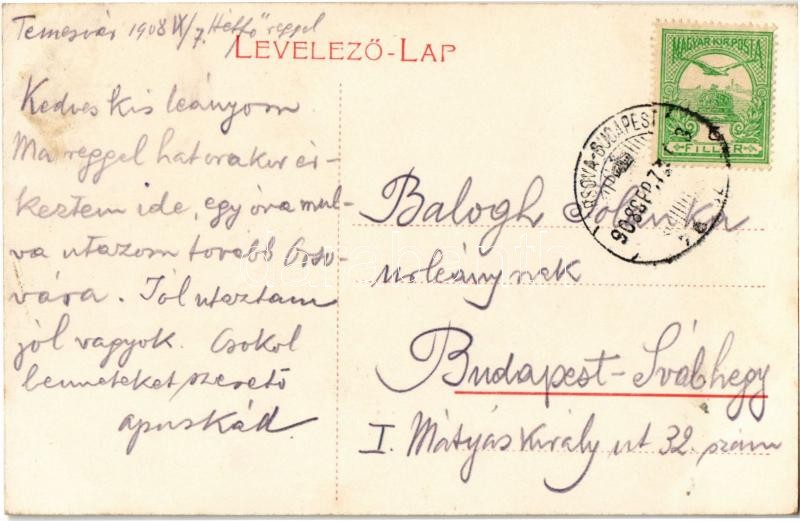 Temesvár 1908 IX/7. Hétfő reggel
LEVELEZŐ-LAP
Kedves kis leányom
Ma reggel hatorakor ér-
keztem ide, egy óra mul-
va utazom tovább Orso-
vára. Jól utaztam
jól vagyok. Csokol
benneteket szerető
apuskád.
MAGYAR KIR. POSTA
6
FILLÉR
ORSOVA-BUDAPEST
908 SEP. 7
Balogh
urleánynek
Budapest-Svábhegy
I. Mátyás Király ut 32. szám